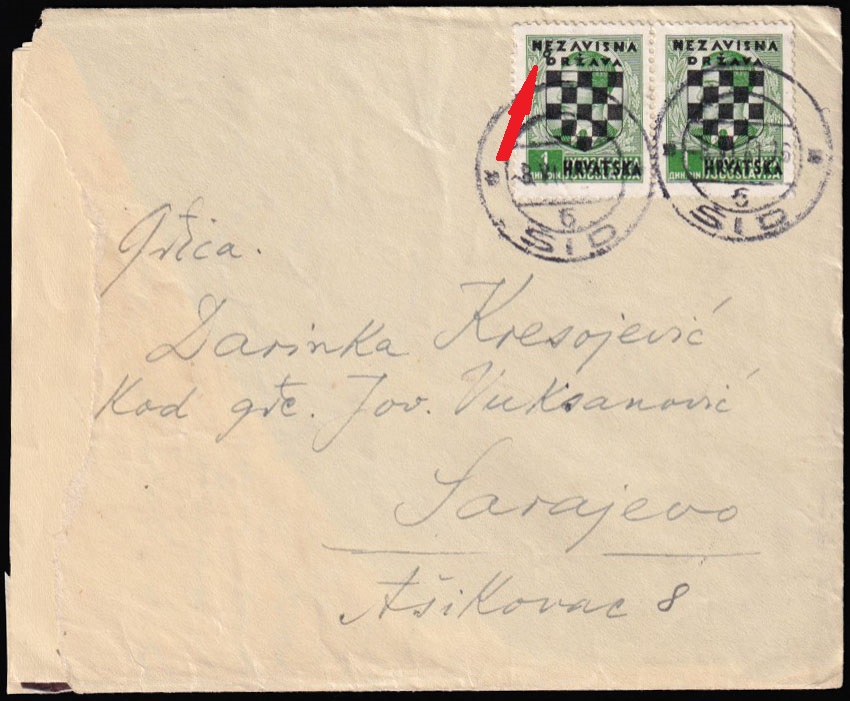 NEZAVISNA
DRŽAVA
HRVATSKA
1
ДИН DIN
NEZAVISNA
DRŽAVA
HRVATSKA
1
ДИН DIN
6
ŠID
6
ŠID
Gđica.
Darinka Kresojević
Kod gđe. Jov. Vuksanović
Sarajevo
Ašikovac 8